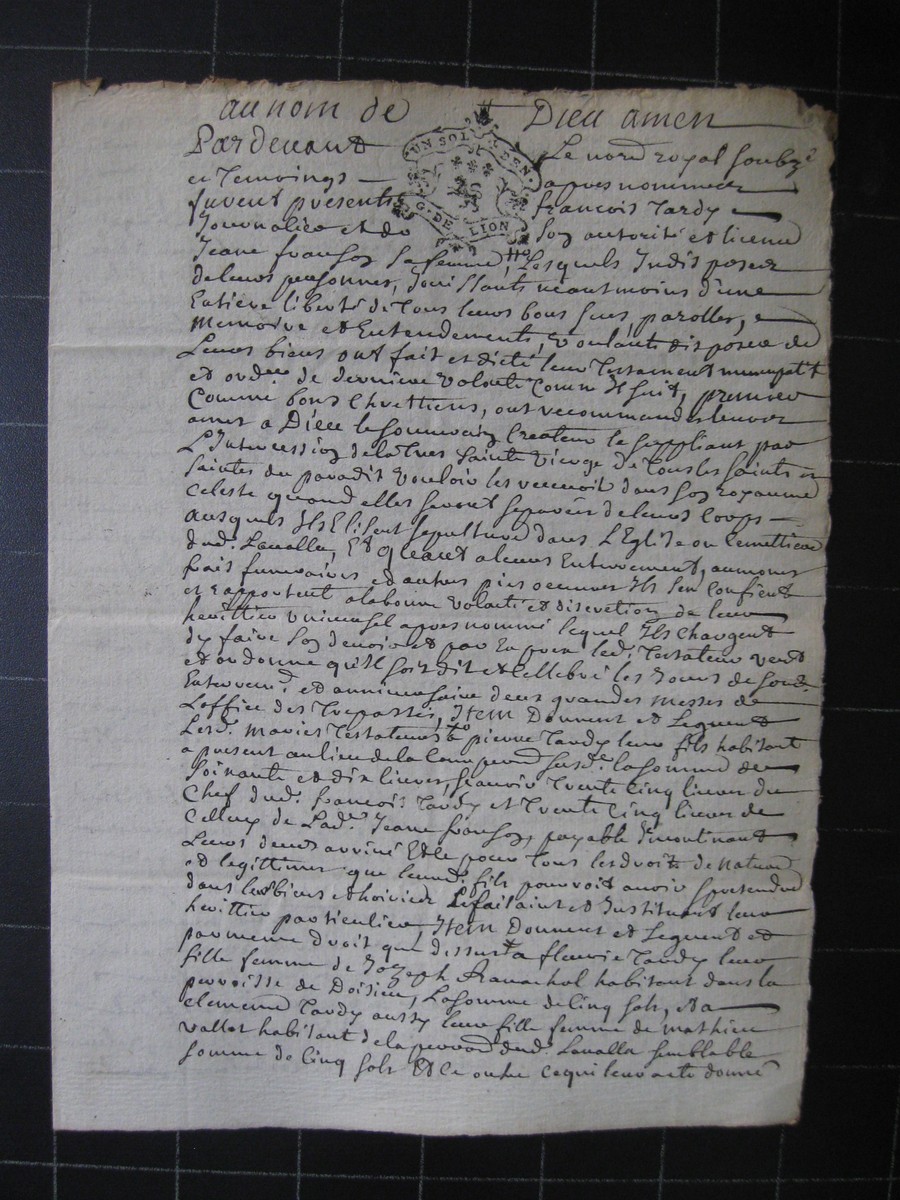 au nom de Dieu amen
Pardevant Le nore royal soubzne
et Temoings apres nommeez
furent presents françois Tardy
Journalier et de Soy autorité et licence
Jeane fransoy sa femme, Lesquels Indisposez
de leurs personnes, Jouissants neantmoins d'une
Entiere liberté de Tous leurs bons sens, parolles,
Memoire et Entendements, voulants disposer de
Leurs biens ont fait et dicté leur Testament nuncupatif
et ordce de derniere volonté comme s'suit, premier
Comme bons Chrettiens, ont recommandes leurs
ames a Dieu le souverain Createur le suppliant par
L'Intercession de la Tres Sainte Vierge de Tous les saints et
saintes du paradit vouloir les recevoir dans son royaume
celeste quand elles seront separées de leurs Corps
Ausquels Ils Elisent sepulture dans L'Eglise ou Cemettiere
dud. Lavalla, Et quant a leurs Enterrement, aumones
frais funeraires et autres pies oeuvres Ils s'en Confient
et rapportent a la bonne volonté et discretion de leur
herittier universel apres nommé lequel Ils Chargent
d'y faire son devoir et par Expres led. Testateur veut
et ordonne qu'il soit dit et Cellebré les Jours de son d.
Enterremt. et anniversaire deux grandes messes de
L'office des Trepassés, Item Donnent et Leguent
Lesd. mariés Testateurs to pierre Tardy leur fils habitant
a present au lieu de la Camp susd. la somme de
soixante et dix livres, scavoir Trente Cinq livres du
Chef dud. françois Tardy et Trente Cinq livres de
Celluy de Lad. Jeane fransoy, payable Incontinant
Leurs deces arrivé Et ce pour Tous les droits de nature
et legittimes que leurd. fils pouvoit avoir et pretendre
dans leurs biens et hoiries Le faisaint et Instituant leur
herittier particulier, Item Donnent et Leguent et
par meme droit que dessus a fleurie Tardy leur
fille femme de Jozeph Ranachol habitant dans la
perroisse de Doisieu, La somme de Cinq sols, Et a
clemence Tardy aussy leur fille femme de mathieu
vallot habitant de la perroisse dud. Lavalla semblable
somme de Cinq sols Et Ce outre ce qui leur a ete donné
UN SOL
G. DE LION